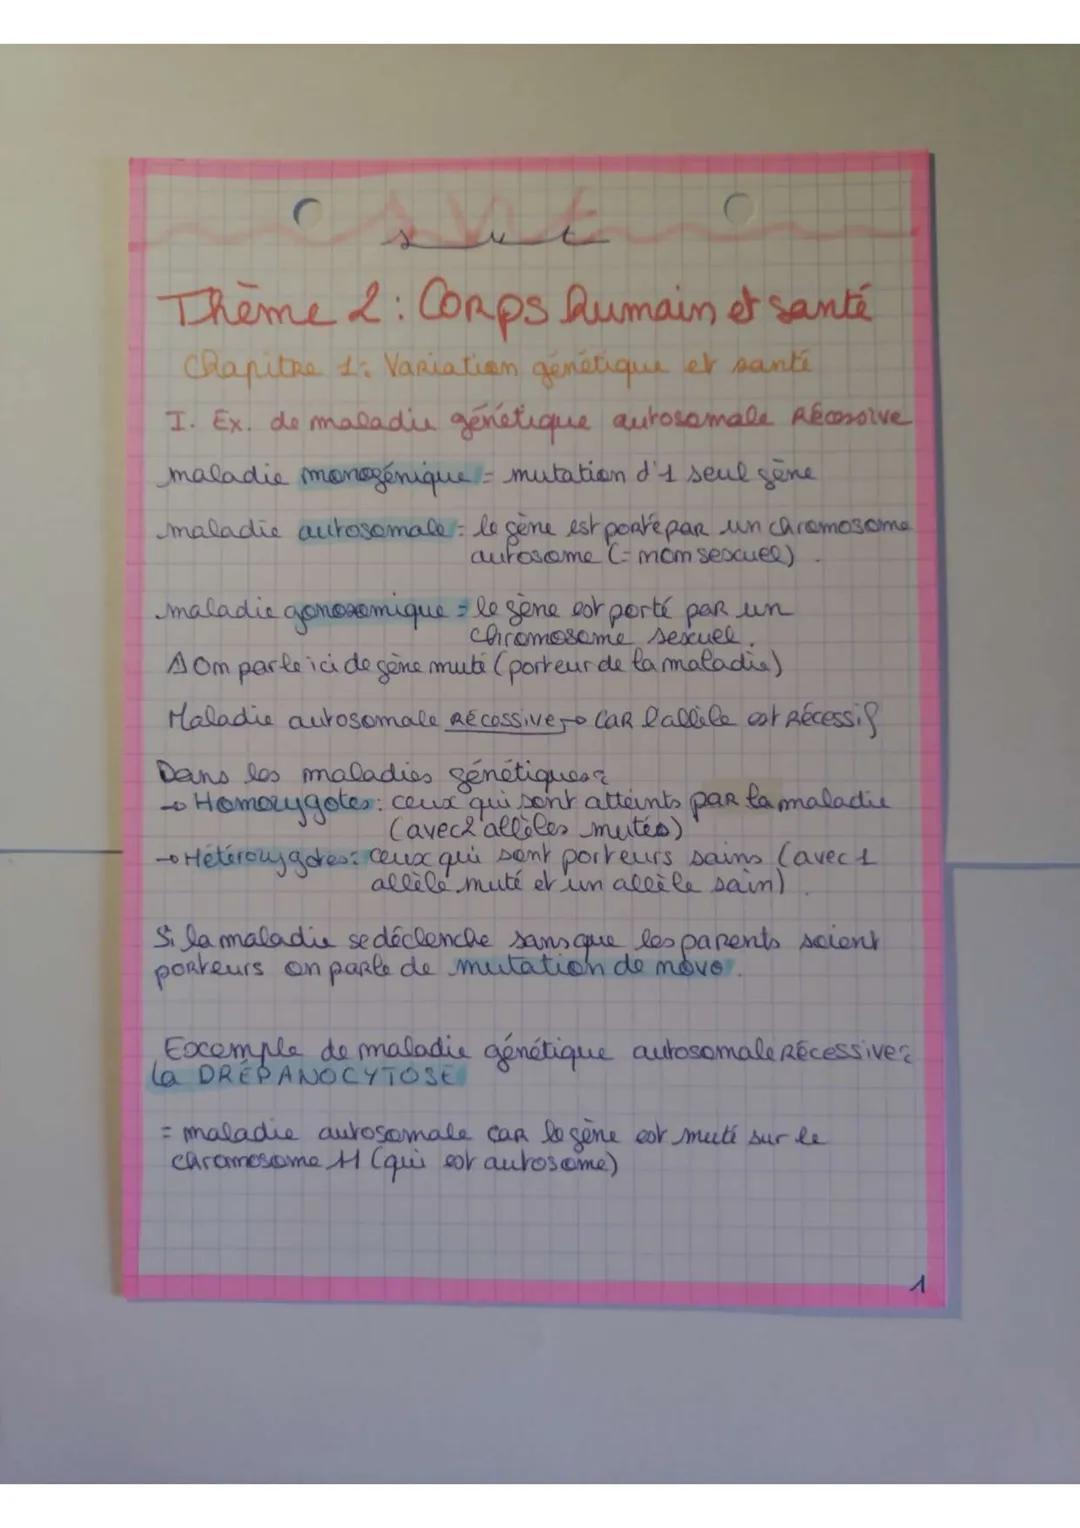 svt
Thème 2: Corps humain et santé
Chapitre 1: Variation génétique et santé
I. Ex. de maladie génétique autosomale Récessive
maladie monogénique = mutation d'1 seul gène
maladie autosomale = le gène est porté par un chromosome
autosome (= non sexuel).
maladie gonosomique = le gène est porté par un
chromosome sexuel.
⚠ On parle ici de gène muté (porteur de la maladie)
Maladie autosomale RÉCESSIVE → CAR l'allèle est RÉcessif
Dans les maladies génétiques:
→ Homozygotes: ceux qui sont atteints par la maladie
(avec 2 allèles mutés)
→ Hétérozygotes: ceux qui sont porteurs sains (avec 1
allèle muté et un allèle sain).
Si la maladie se déclenche sans que les parents soient
porteurs on parle de mutation de novo.
Exemple de maladie génétique autosomale RÉcessive:
la DRÉPANOCYTOSE
= maladie autosomale car le gène est muté sur le
chromosome 11 (qui est autosome)
1